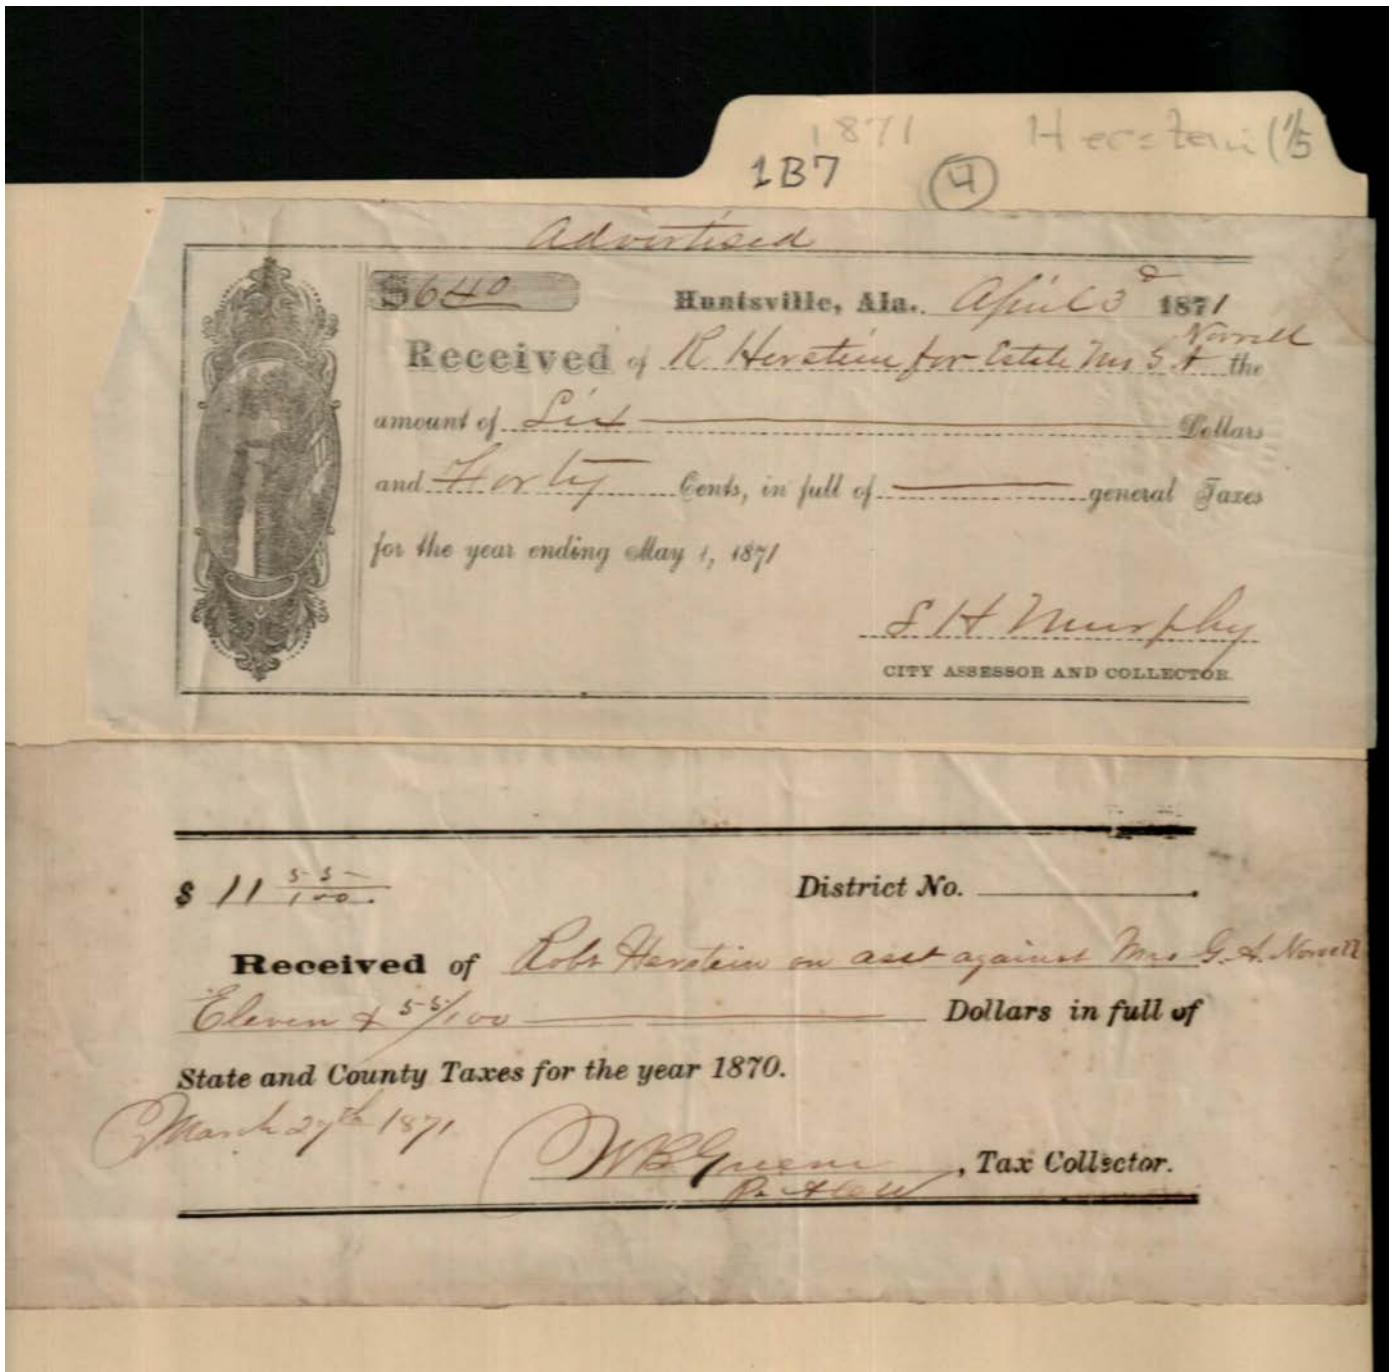 1871 Herstein (1/5
1B7 4
Advertised
$6 40 Huntsville, Ala. April 3d 1871
Norvell
Received of R Herstein for Estate Mrs G A the
amount of Six Dollars
and Forty Cents, in full of general Taxes
for the year ending May 1, 1871
S H Murphy
CITY ASSESSOR AND COLLECTOR.
$ 11 55/100. District No.
Received of Robt Herstein on asst against Mrs G. A. Norvell
Eleven & 55/100 Dollars in full of
State and County Taxes for the year 1870.
March 29th 1871
W B Green, Tax Collector.